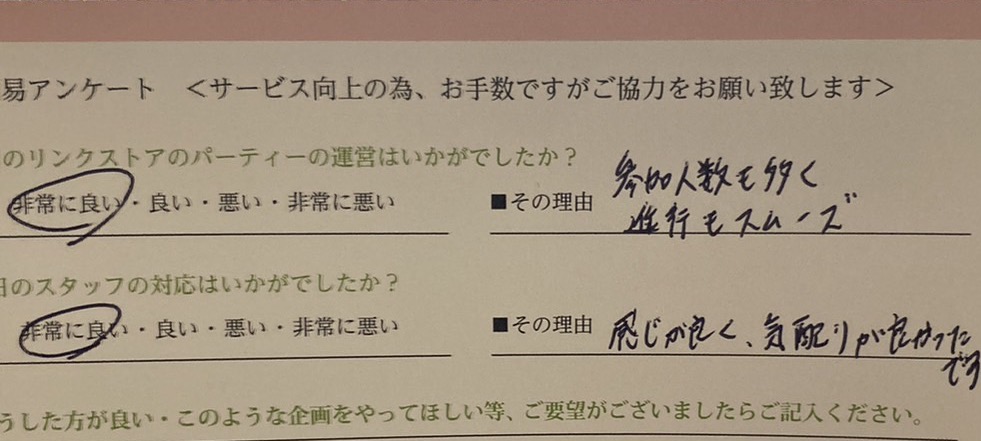 易アンケート <サービス向上の為、お手数ですがご協力をお願い致します>
のリンクストアのパーティーの運営はいかがでしたか?
参加人数も多く
非常に良い・良い・悪い・非常に悪い ■その理由
進行もスムーズ
日のスタッフの対応はいかがでしたか?
非常に良い・良い・悪い・非常に悪い ■その理由 感じが良く、気配りが良かった
です
うした方が良い・このような企画をやってほしい等、ご要望がございましたらご記入ください。